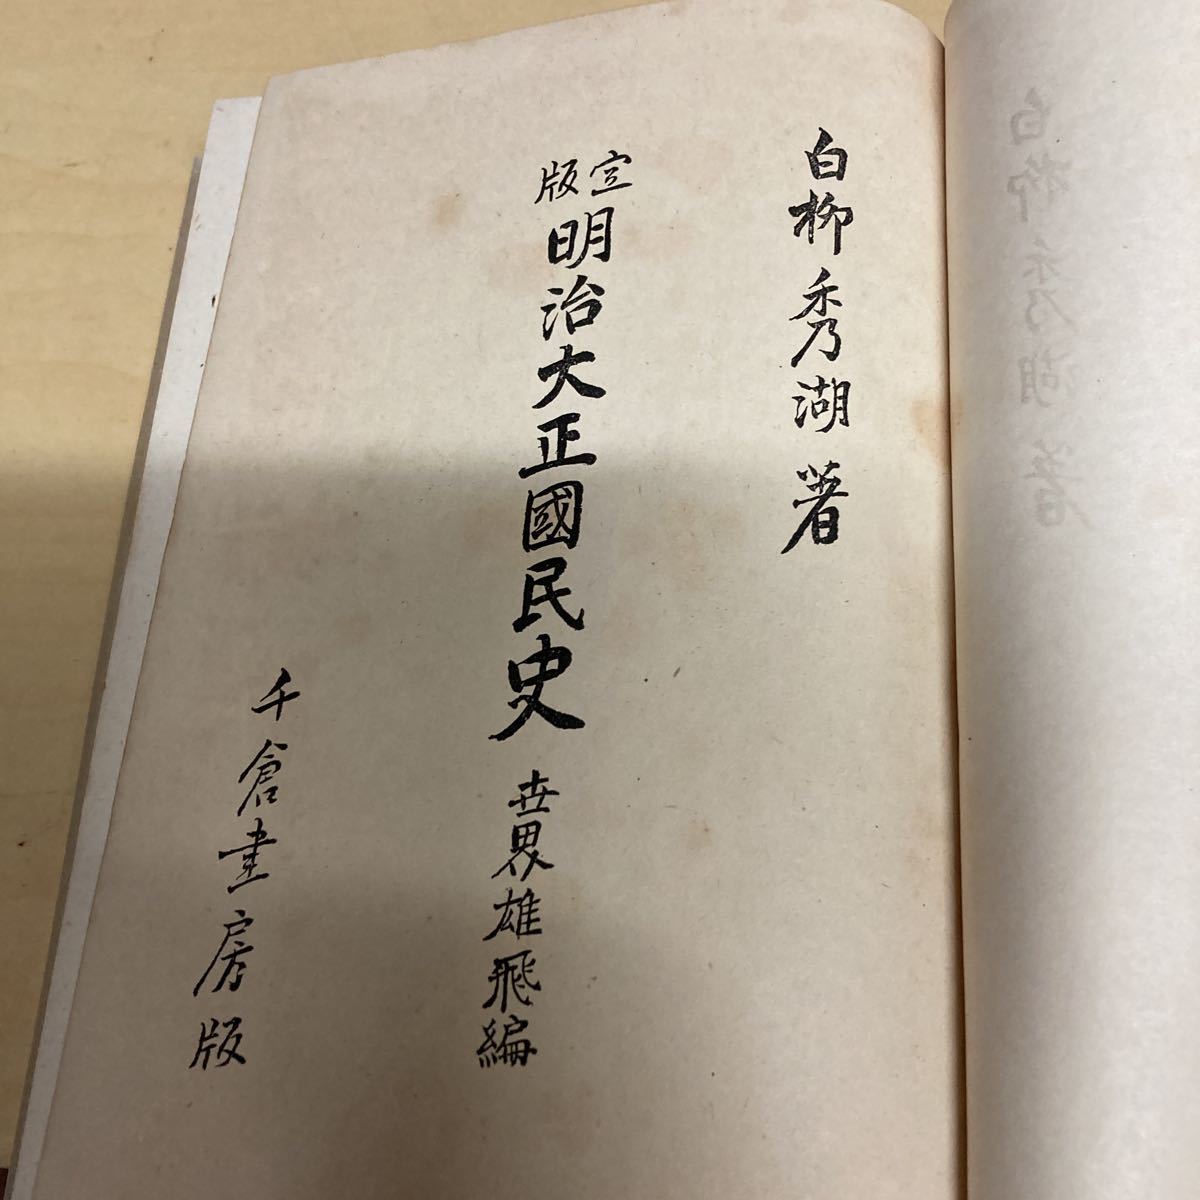 白柳秀湖著
定版 明治大正國民史 世界雄飛編
千倉書房版